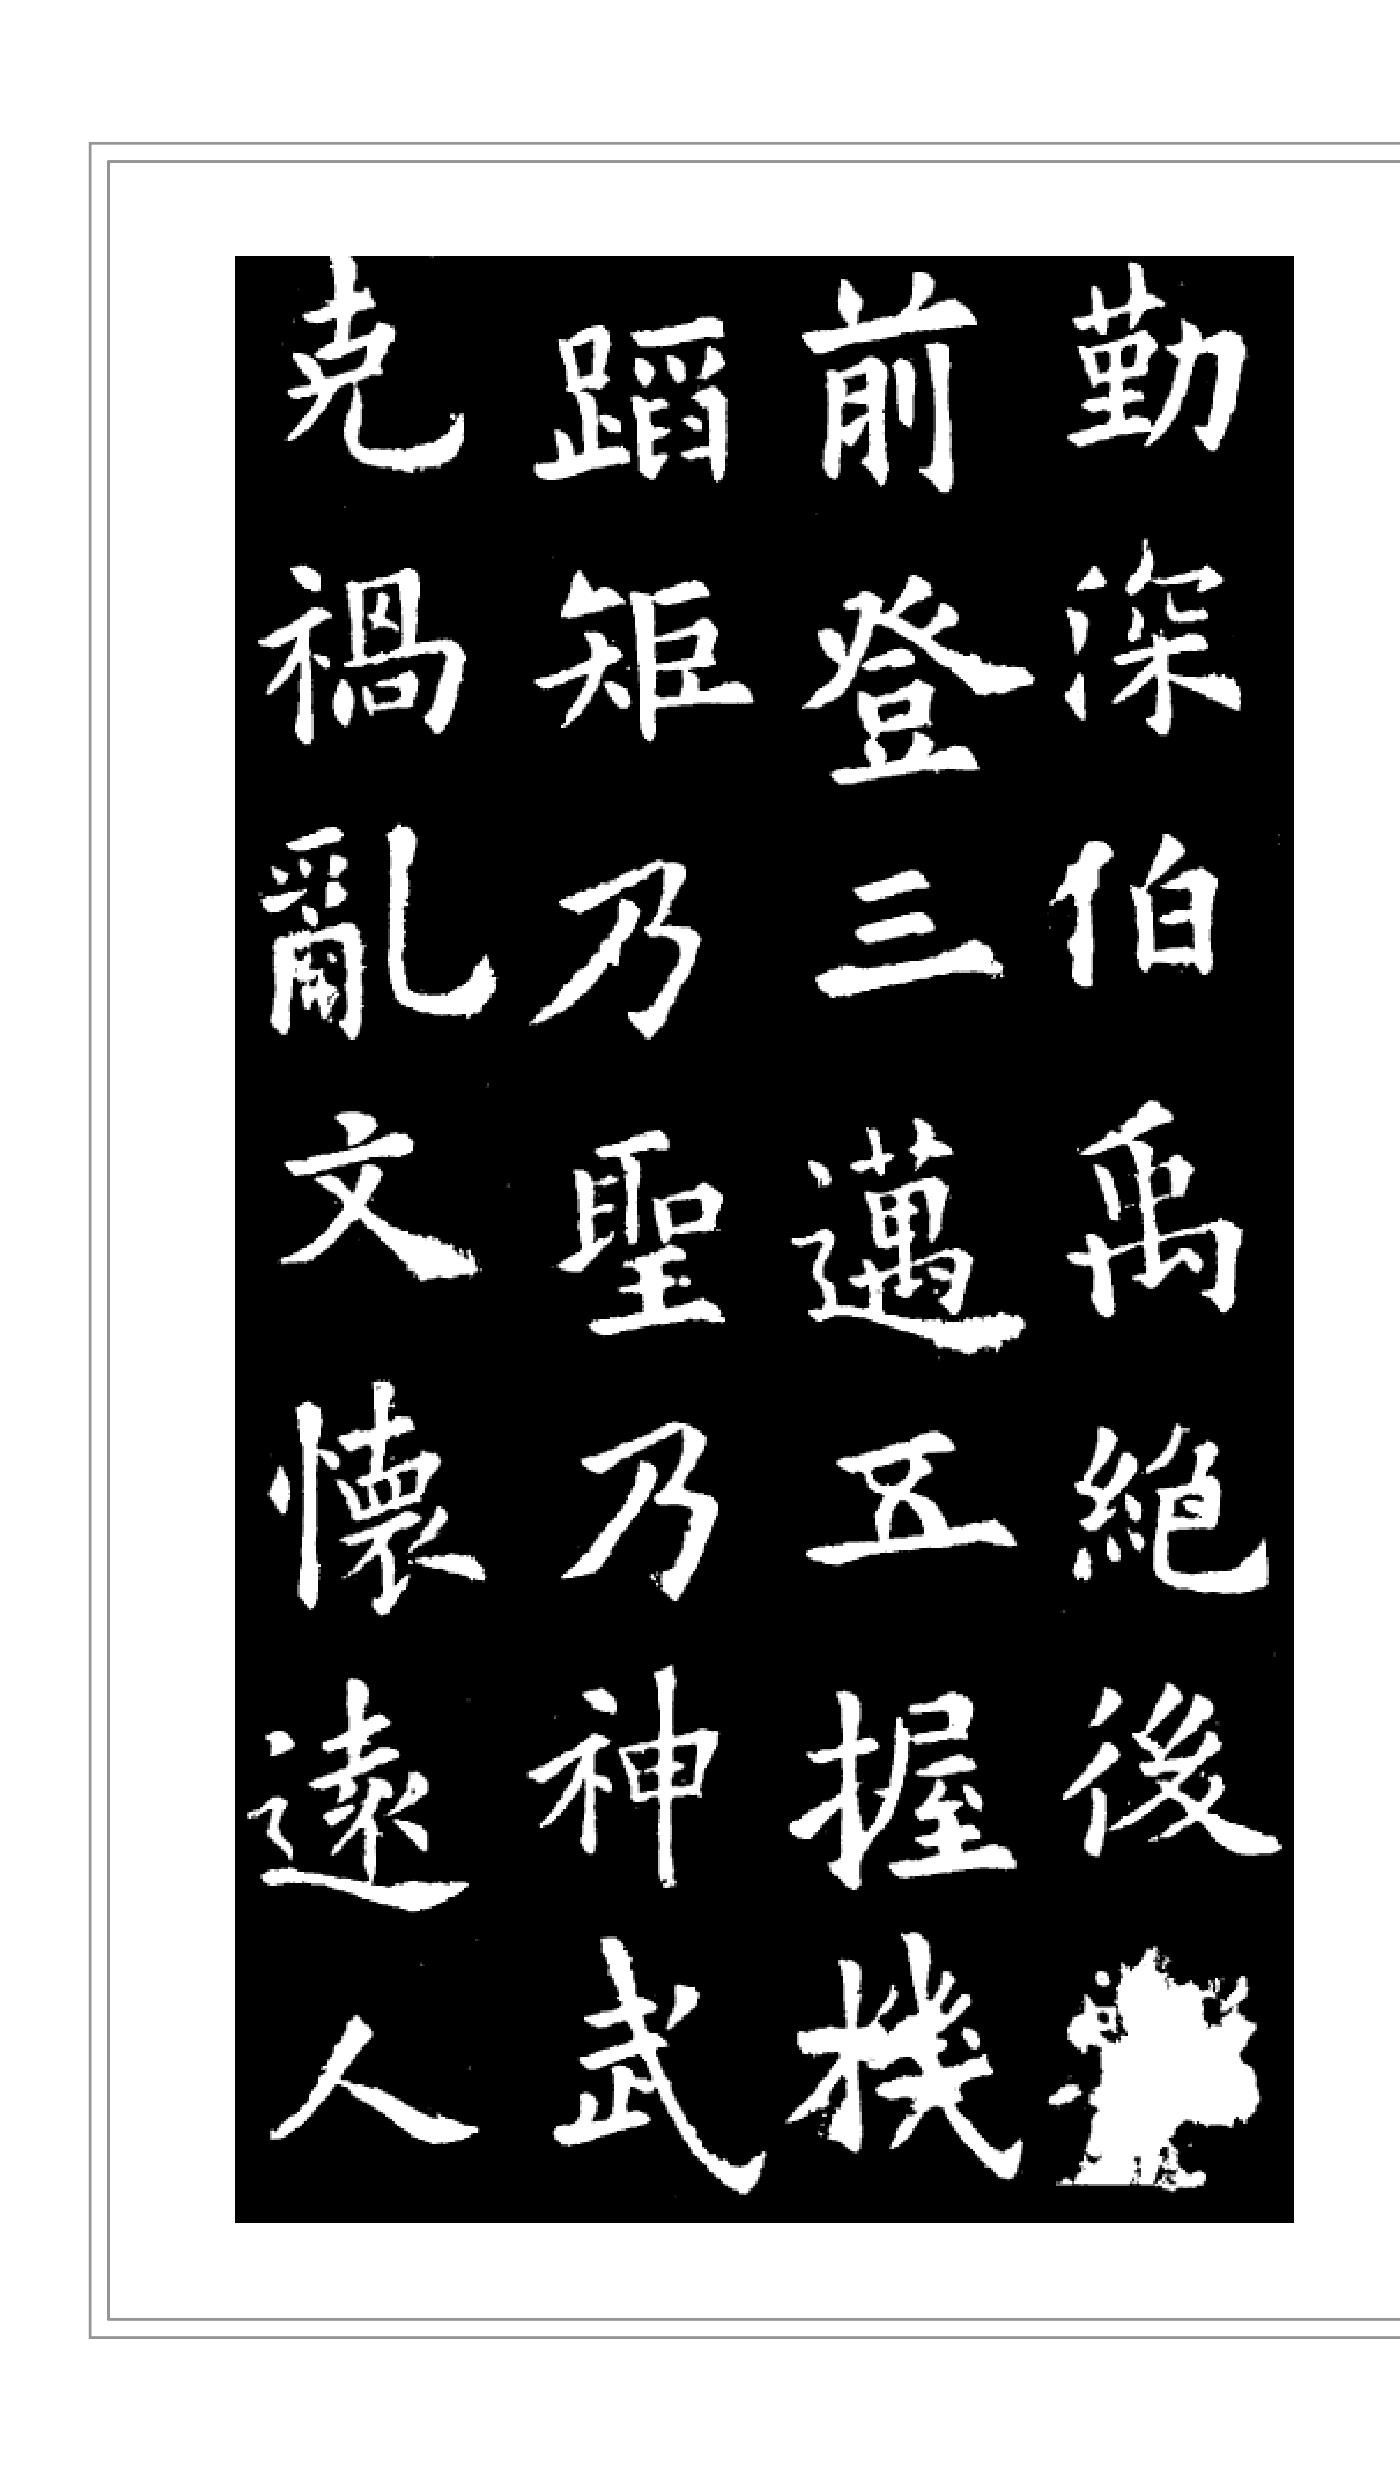 勤深伯禹絶後
前登三邁五握機
蹈矩乃聖乃神武
克禍亂文懷遠人